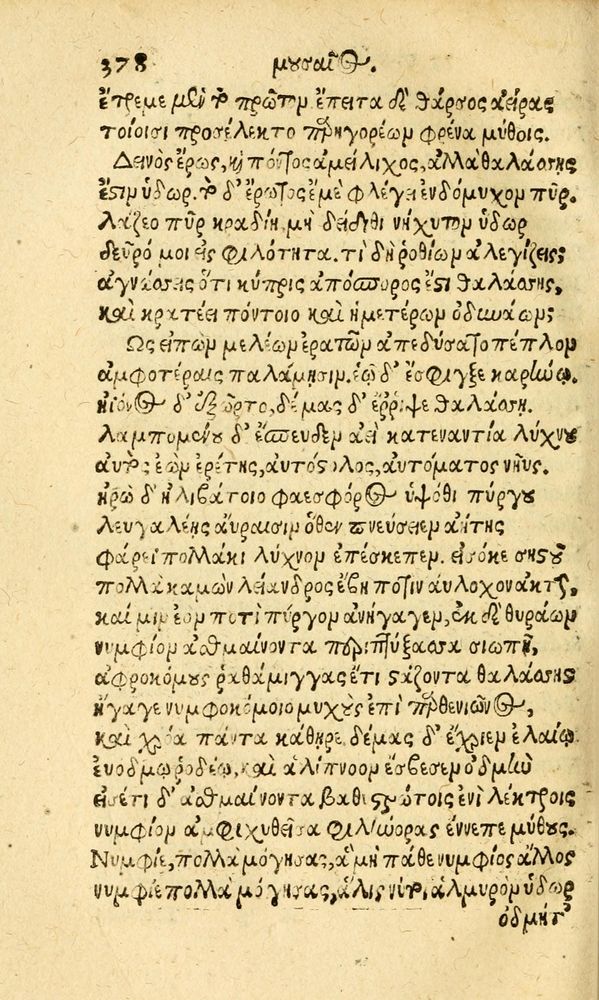 378 μουσαῖος.
ἔτρεμε μὲν τὸ πρῶτον ἔπειτα δὲ θάρσος ἀείρας
τοίοισι προσέλεκτο παρηγορέων φρένα μύθοις.
Δεινὸς ἔρως, καὶ πόντος ἀμείλιχος, ἀλλὰ θαλάσσης
ἐστὶν ὕδωρ. τὸ δ' ἔρωτος ἐμὲ φλέγει ἐνδόμυχον πῦρ.
λάζεο πῦρ κραδίη, μὴ δείδιθι νήχυτον ὕδωρ
δεῦρό μοι εἰς φιλότητα. τί δὴ ῥοθίων ἀλεγίζεις;
ἀγνώσσεις ὅτι κύπρις ἀπόσπορος ἐστὶ θαλάσσης,
καὶ κρατέει πόντοιο καὶ ἡμετέρων ὀδυνάων;
Ως εἰπὼν μελέων ἐρατῶν ἀπεδύσατο πέπλον
ἀμφοτέραις παλάμησιν. ἑῷ δ' ἔσφιγξε καρήνῳ.
ἠϊόνος δ' ἐξῶρτο, δέμας δ' ἔρριψε θαλάσσῃ.
λαμπομένου δ' ἔσπευδεν ἀεὶ κατεναντία λύχνου
αὐτὸς ἐὼν ἐρέτης, αὐτόστολος, αὐτόματος νηῦς.
ἡρὼ δ' ἠλιβάτοιο φαεσφόρος ὑψόθι πύργου
λευγαλέης αὔραισιν ὅθεν πνεύσειεν ἀήτης
φάρεϊ πολλάκι λύχνον ἐπέσκεπεν. εἰσόκε σηστοῦ
πολλὰ καμὼν λείανδρος ἔβη ποτὶ ναύλοχον ἀκτήν,
καί μιν ἑὸν ποτὶ πύργον ἀνήγαγεν, ἐκ δὲ θυράων
νυμφίον ἀσθμαίνοντα περιπτύξασα σιωπῇ,
ἀφροκόμους ῥαθάμιγγας ἔτι στάζοντα θαλάσσης
ἤγαγε νυμφοκόμοιο μυχοὺς ἐπὶ παρθενιῶνος,
καὶ χρόα πάντα κάθηρε δέμας δ' ἔχριεν ἐλαίῳ
ἐυόδμῳ ῥοδέῳ, καὶ ἁλίπνοον ἔσβεσεν ὀδμὴν
εἰσέτι δ' ἀσθμαίνοντα βαθυστρώτοις ἐνὶ λέκτροις
νυμφίον ἀμφιχυθεῖσα φιλήνορας ἔννεπε μύθους.
Νυμφίε, πολλὰ μόγησας, ἃ μὴ πάθε νυμφίος ἄλλος
νυμφίε πολλὰ μόγησας, ἅλις νύ τοι, ἁλμυρὸν ὕδωρ
ὀδμήτ